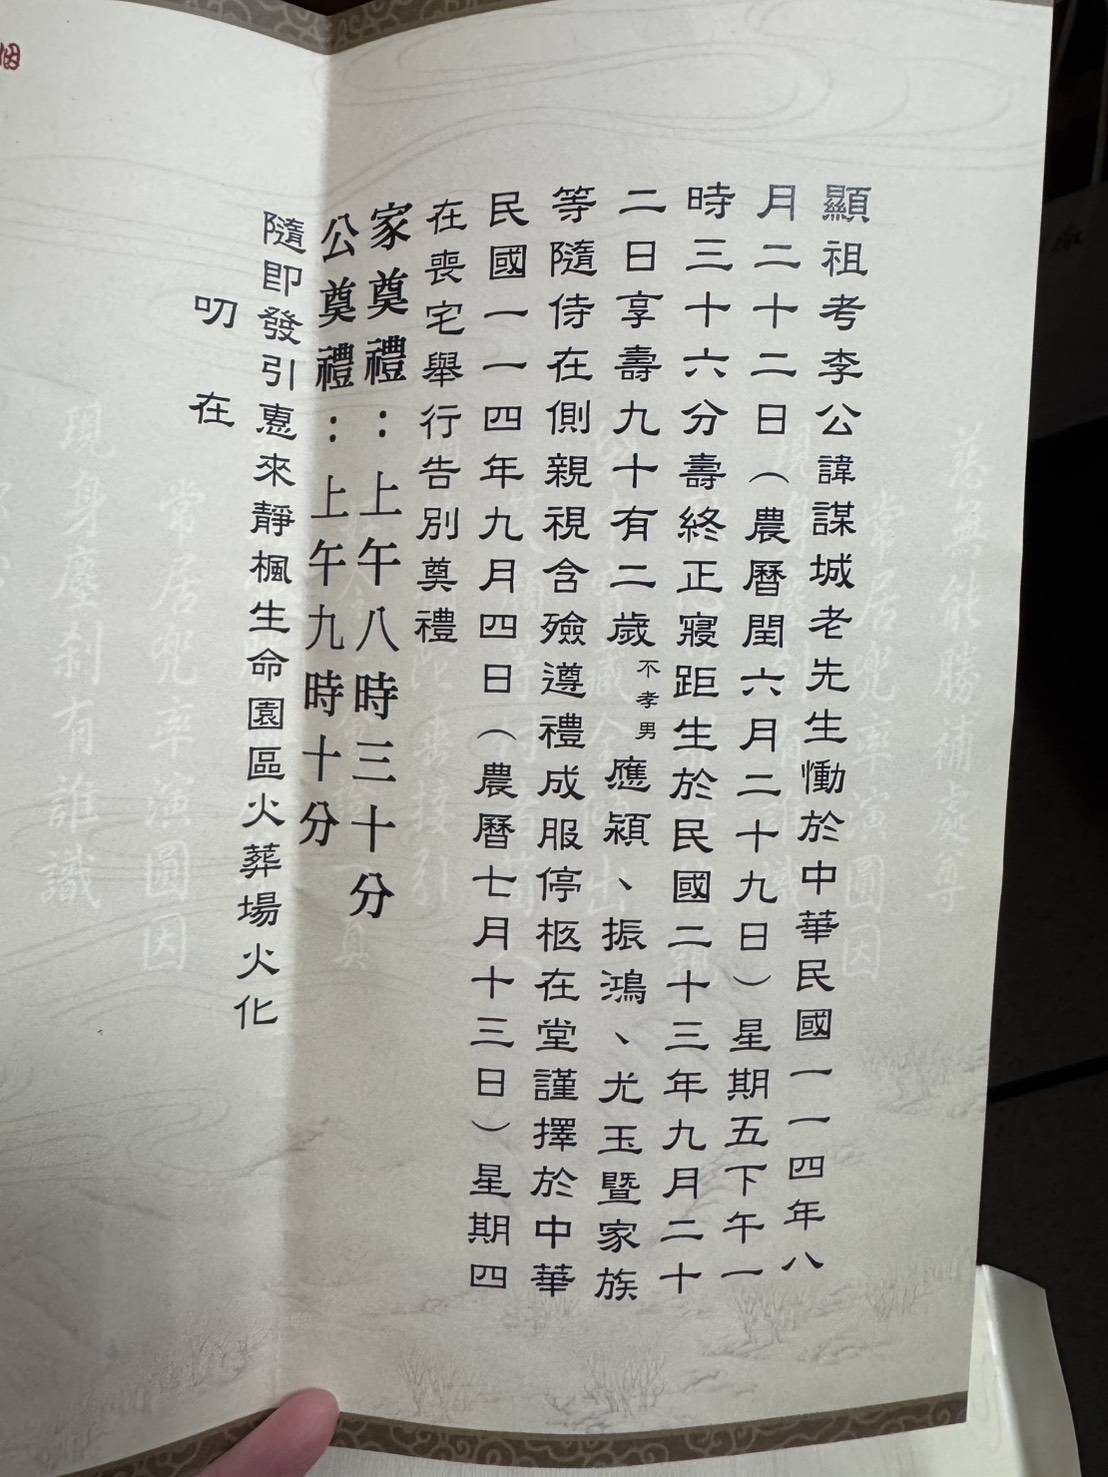 顯祖考李公諱謀城老先生慟於中華民國一一四年八
月二十二日（農曆閏六月二十九日）星期五下午一
時三十六分壽終正寢距生於民國二十三年九月二十
二日享壽九十有二歲不孝男應潁、振鴻、尤玉暨家族
等隨侍在側親視含殮遵禮成服停柩在堂謹擇於中華
民國一一四年九月四日（農曆七月十三日）星期四
在喪宅舉行告別奠禮
家奠禮：上午八時三十分
公奠禮：上午九時十分
隨即發引惠來靜楓生命園區火葬場火化
叨在